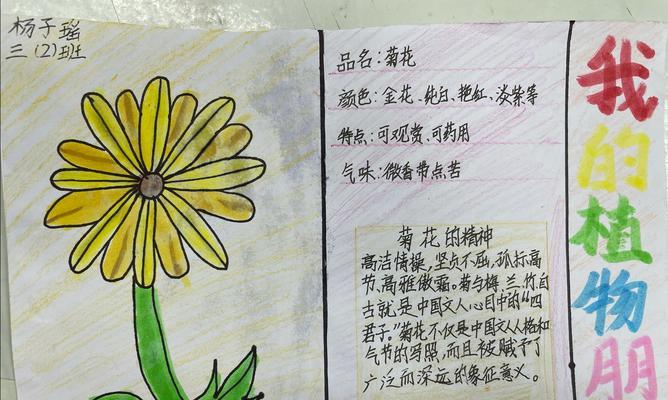 杨子瑶
三(2)班
品名:菊花
颜色:金花、纯白、艳红、淡紫等
特点:可观赏、可药用
气味:微香带点苦
菊花的精神
高洁情操,坚贞不屈,孤标高
节、高雅傲霜。菊与梅、兰、竹自
古就是中国文人心目中的“四
君子。”菊花不仅是中国文人人格和
气节的写照,而且被赋予了
广泛而深远的象征意义。
我的植物朋